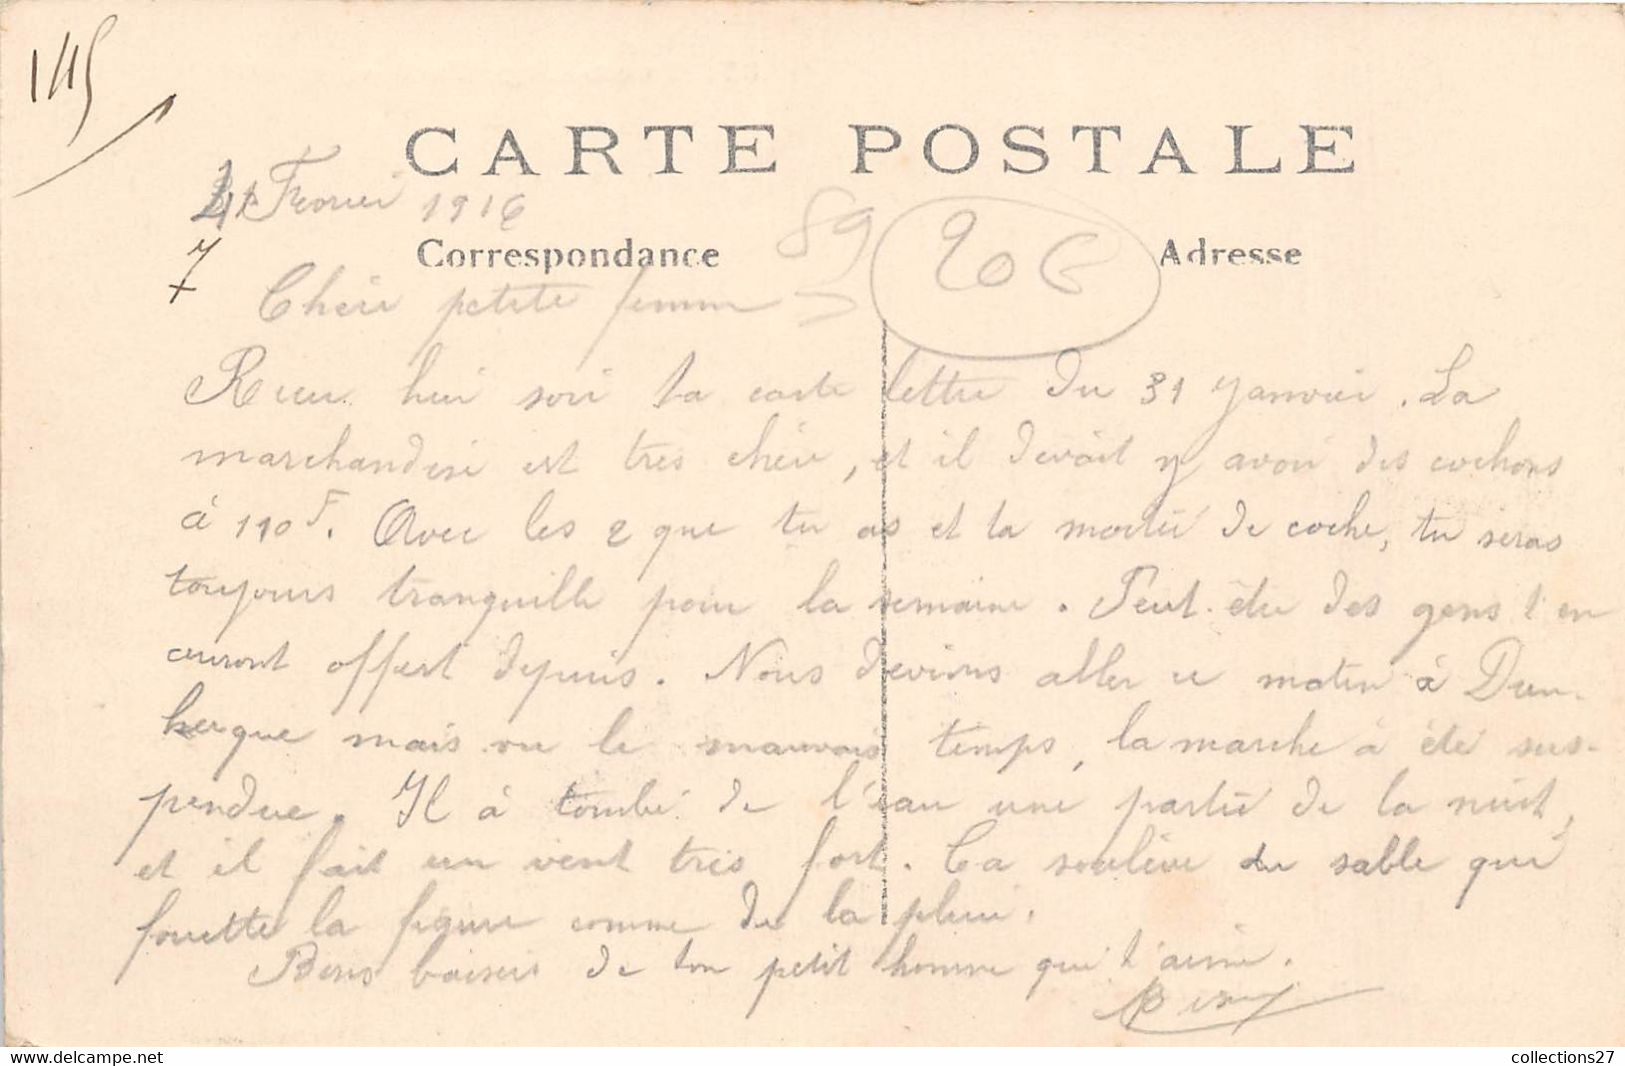 145
CARTE POSTALE
Février 1916
Correspondance
Adresse
89
206
7
Chère petite femme
Recu hier soir ta carte lettre du 31 Janvier. La
marchandise est très chère, et il devait y avoir des cochons
à 110F. Avec les 2 que tu as et ta moitié de coche, tu seras
toujours tranquille pour la semaine. Peut-être des gens t'en
auront offert depuis. Nous devions aller ce matin à Dun-
kerque mais vu le mauvais temps, la marche à été sus-
pendue. Il à tombé de l'eau une partie de la nuit,
et il fait un vent très fort. Ca soulève du sable qui
fouette la figure comme de la pluie.
Bons baisers de ton petit homme qui t'aime.
collections27